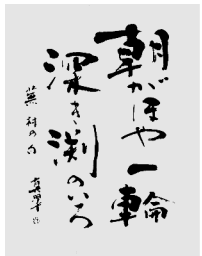 朝がほや一輪
深き渕のいろ
蕪村の句